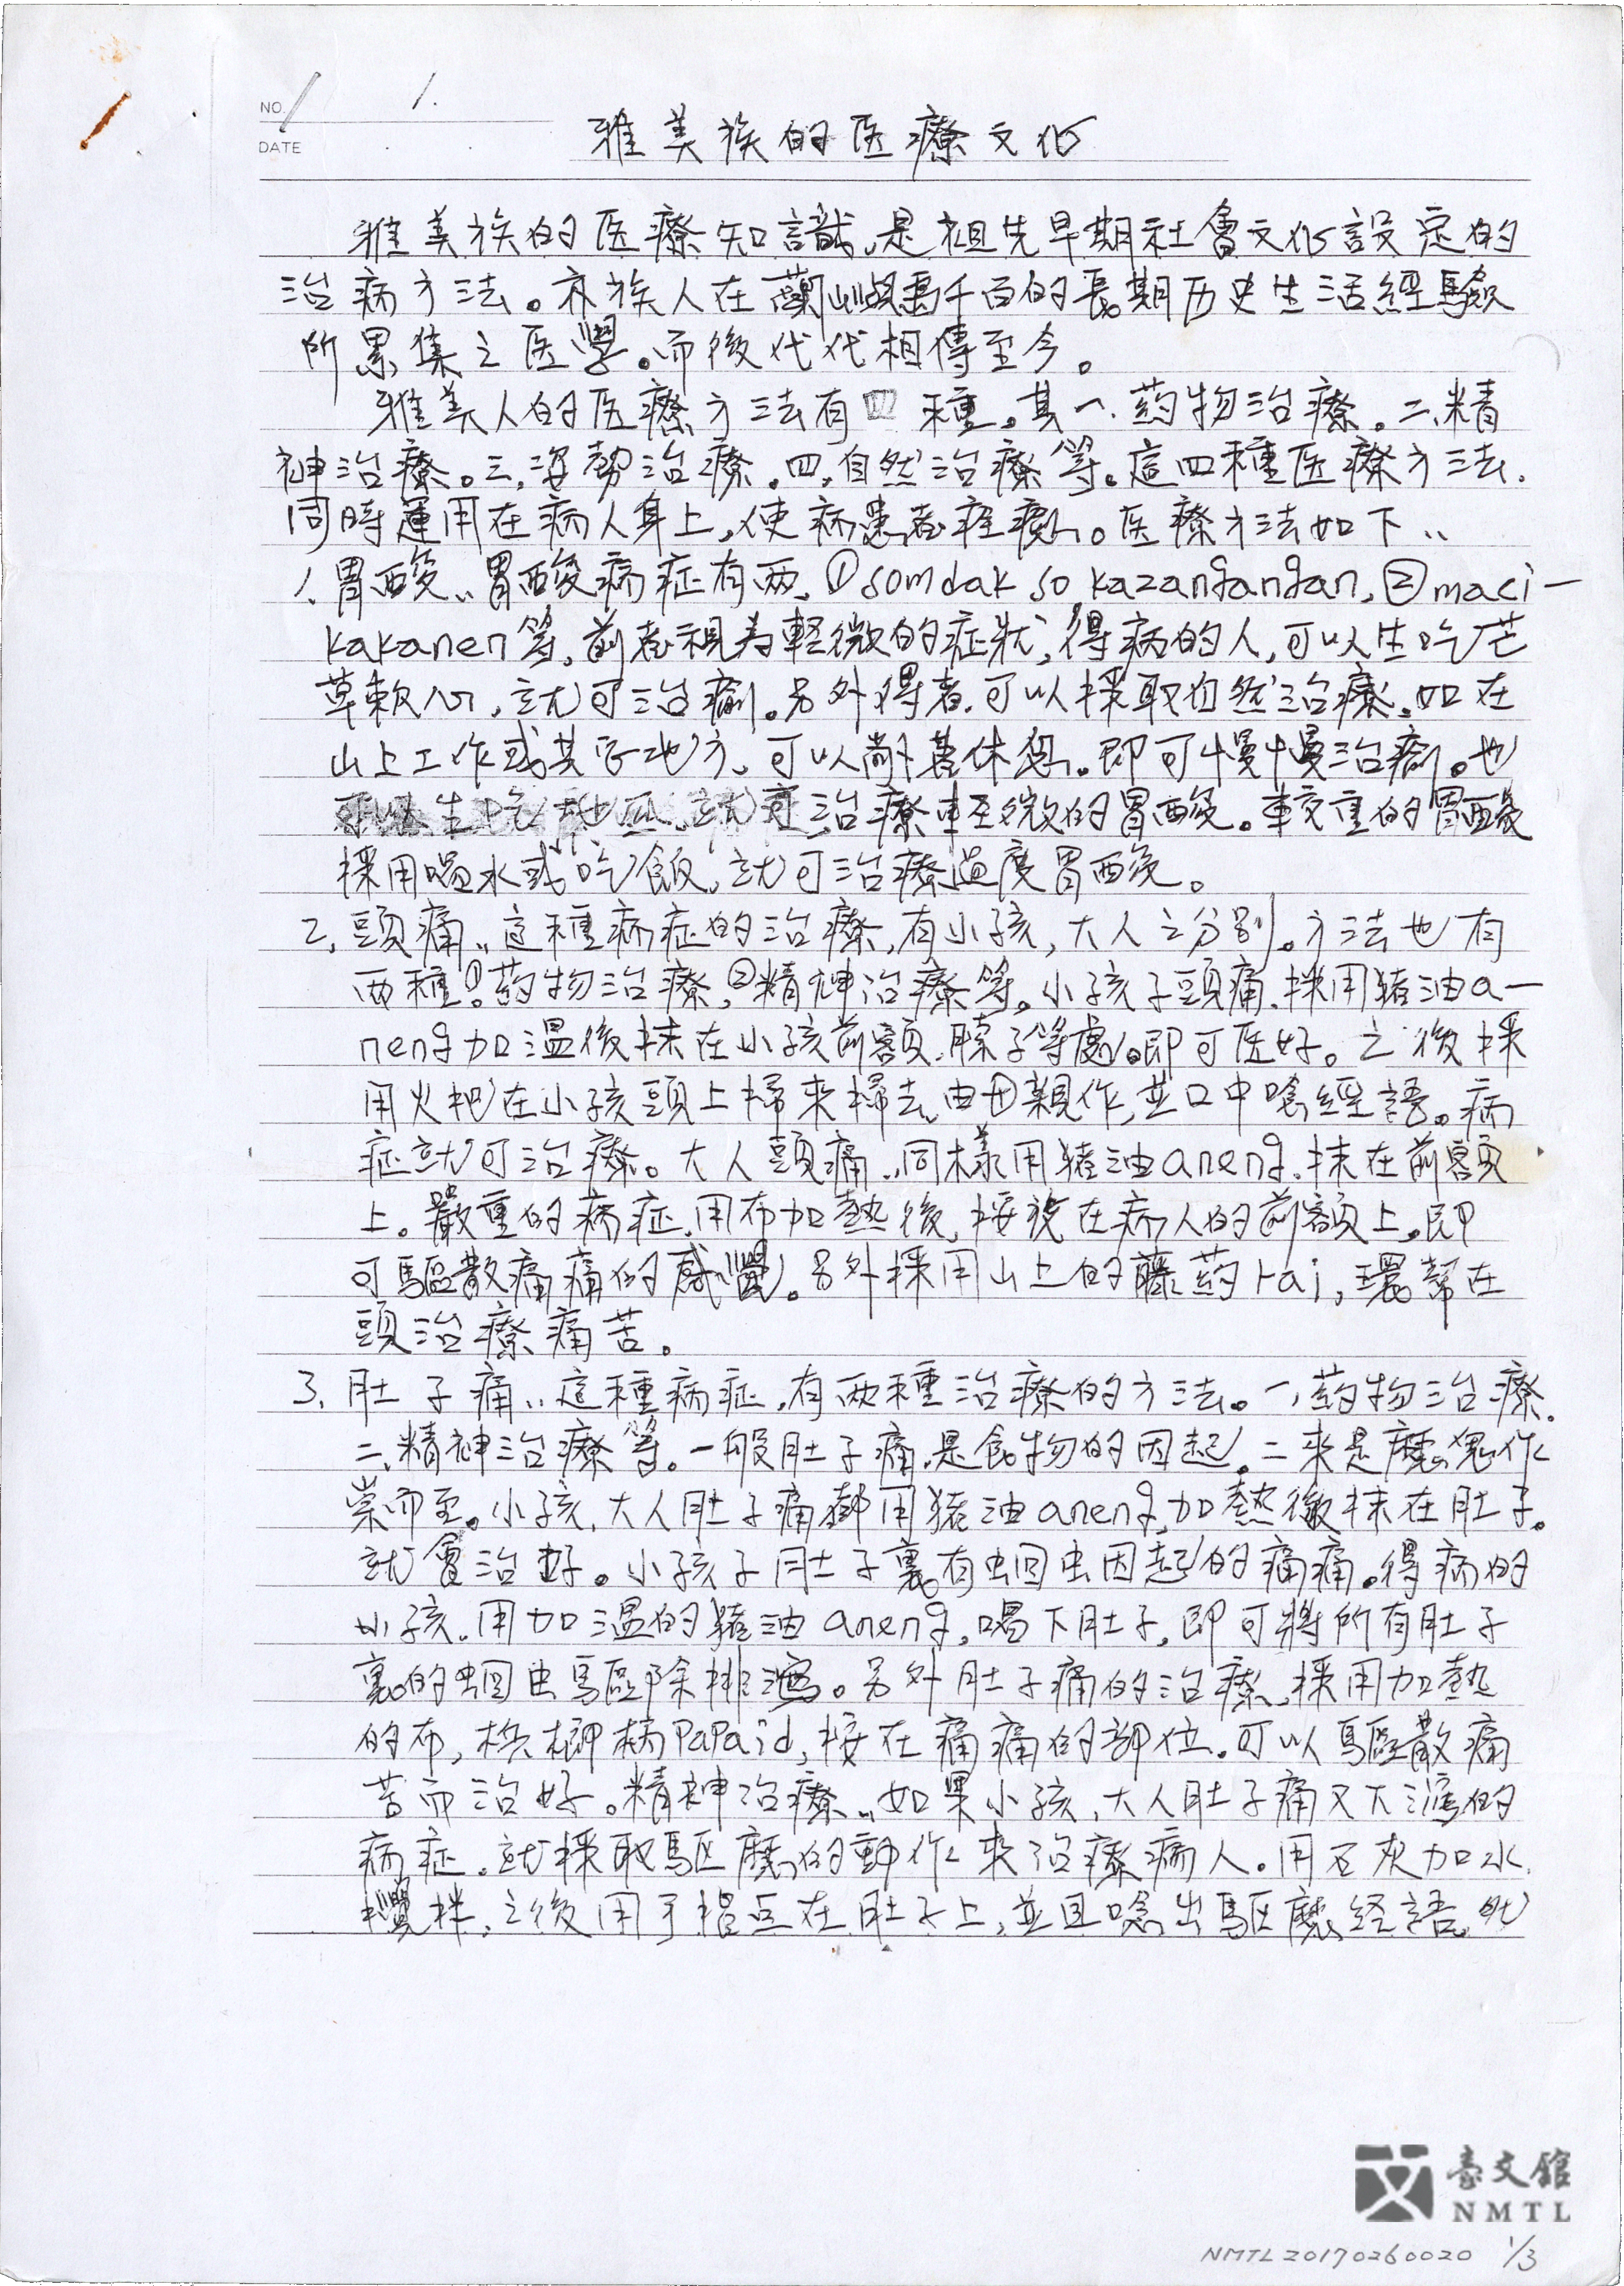 NO. 1 1.
DATE 雅美族的医療文化
雅美族的医療知識,是祖先早期社會文化設定的
治病方法。亦族人在蘭嶼島千百的長期历史生活經驗
所累集之医學。而後代代相傳至今。
雅美人的医療方法有四種。其一.葯物治療。二.精
神治療。三.姿勢治療.四.自然治療等。這四種医療方法.
同時運用在病人身上,使病患者痊癒。医療方法如下:
1.胃酸:胃酸病症有兩,①somdak so kazangangan,②maci-
kakanen等,前者視為輕微的症狀,得病的人,可以生吃芒
草軟心,就可治癒。另外得者.可以採取自然治療,如在
山上工作或其它地方,可以耐著休息。即可慢慢治癒。也
可以生吃地瓜,就可治療輕微的胃酸。較重的胃酸
採用喝水或吃飯,就可治療過度胃酸。
2.頭痛:這種病症的治療,有小孩,大人之分別。方法也有
兩種①葯物治療,②精神治療等。小孩子頭痛.採用豬油a-
neng加溫後抹在小孩前額.脖子等處。即可医好。之後採
用火把在小孩頭上掃來掃去,由母親作,並口中唸經語。病
症就可治療。大人頭痛.同樣用豬油aneng.抹在前額
上。嚴重的病症.用布加熱後,按在病人的前額上,即
可驅散痛痛的感覺。另外採用山上的藤葯rai,環幫在
頭治療痛苦。
3.肚子痛:這種病症,有兩種治療的方法。一,葯物治療.
二,精神治療等。一般肚子痛.是食物的因起,二來是魔鬼作
祟而至。小孩,大人肚子痛都用豬油aneng,加熱後抹在肚子。
就會治好。小孩子肚子裏有蛔虫因起的痛痛。得病的
小孩.用加溫的豬油aneng,喝下肚子,即可將所有肚子
裏的蛔虫驅除排瀉。另外肚子痛的治療,採用加熱
的布,檳榔柄papaid,按在痛痛的部位.可以驅散痛
苦而治好。精神治療:如果小孩,大人肚子痛又下瀉的
病症.就採取驅魔的動作來治療病人。用石灰加水
攪拌,之後用手指点在肚子上,並且唸出驅魔經語.就
臺文館
NMTL
NMTL20170260020 1/3